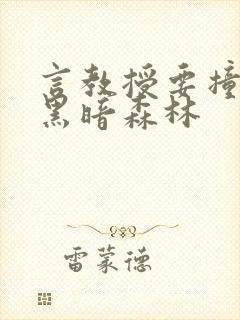 言教授要撞
黑暗森林
雷蒙德